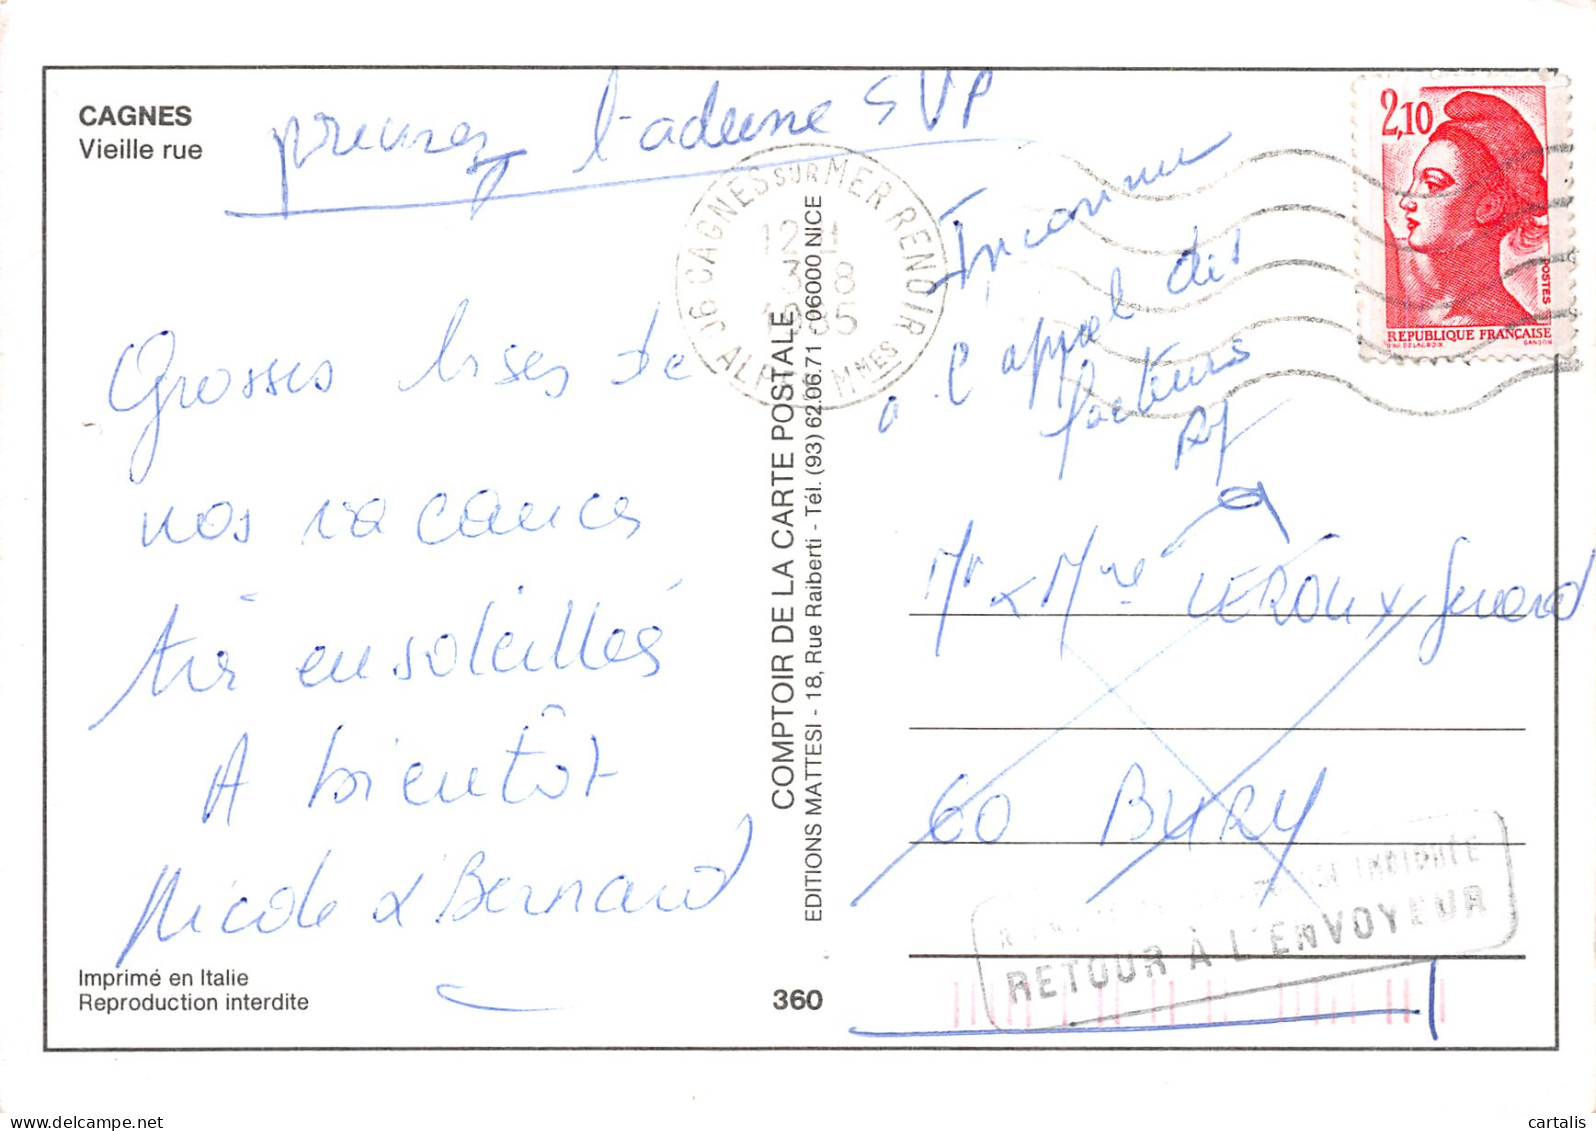 CAGNES
Vieille rue
l'adresse SVP
Grosses bises de
nos vacances
très ensoleillés
A bientôt
Nicole & Bernard
Imprimé en Italie
Reproduction interdite
360
COMPTOIR DE LA CARTE POSTALE
EDITIONS MATTESI - 18, Rue Raiberti - Tél. (93) 62.06.71 - 06000 NICE
06 CAGNES SUR MER RENOIR
12 H
3 - 8
1985
ALPES MMES
2,10
POSTES
REPUBLIQUE FRANÇAISE
D'AP. DELACROIX GANDON
Inconnu
à l'appel des
facteurs
Mr & Mme LEROUX
60 BURY
INDIQUÉE
RETOUR À L'ENVOYEUR
www.delcampe.net
cartalis